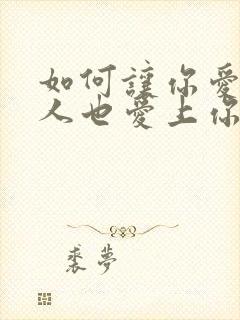 如何讓你愛
人也愛上你
裘夢